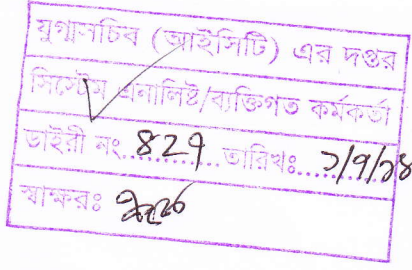 যুগ্মসচিব (আইসিটি) এর দপ্তর
সিস্টেম এনালিষ্ট/ব্যক্তিগত কর্মকর্তা
ডাইরী নং..৪২৭..তারিখঃ..১/৭/১৪
স্বাক্ষরঃ